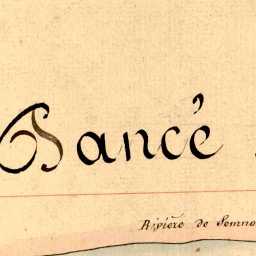 Dancé
Rivière de Semno